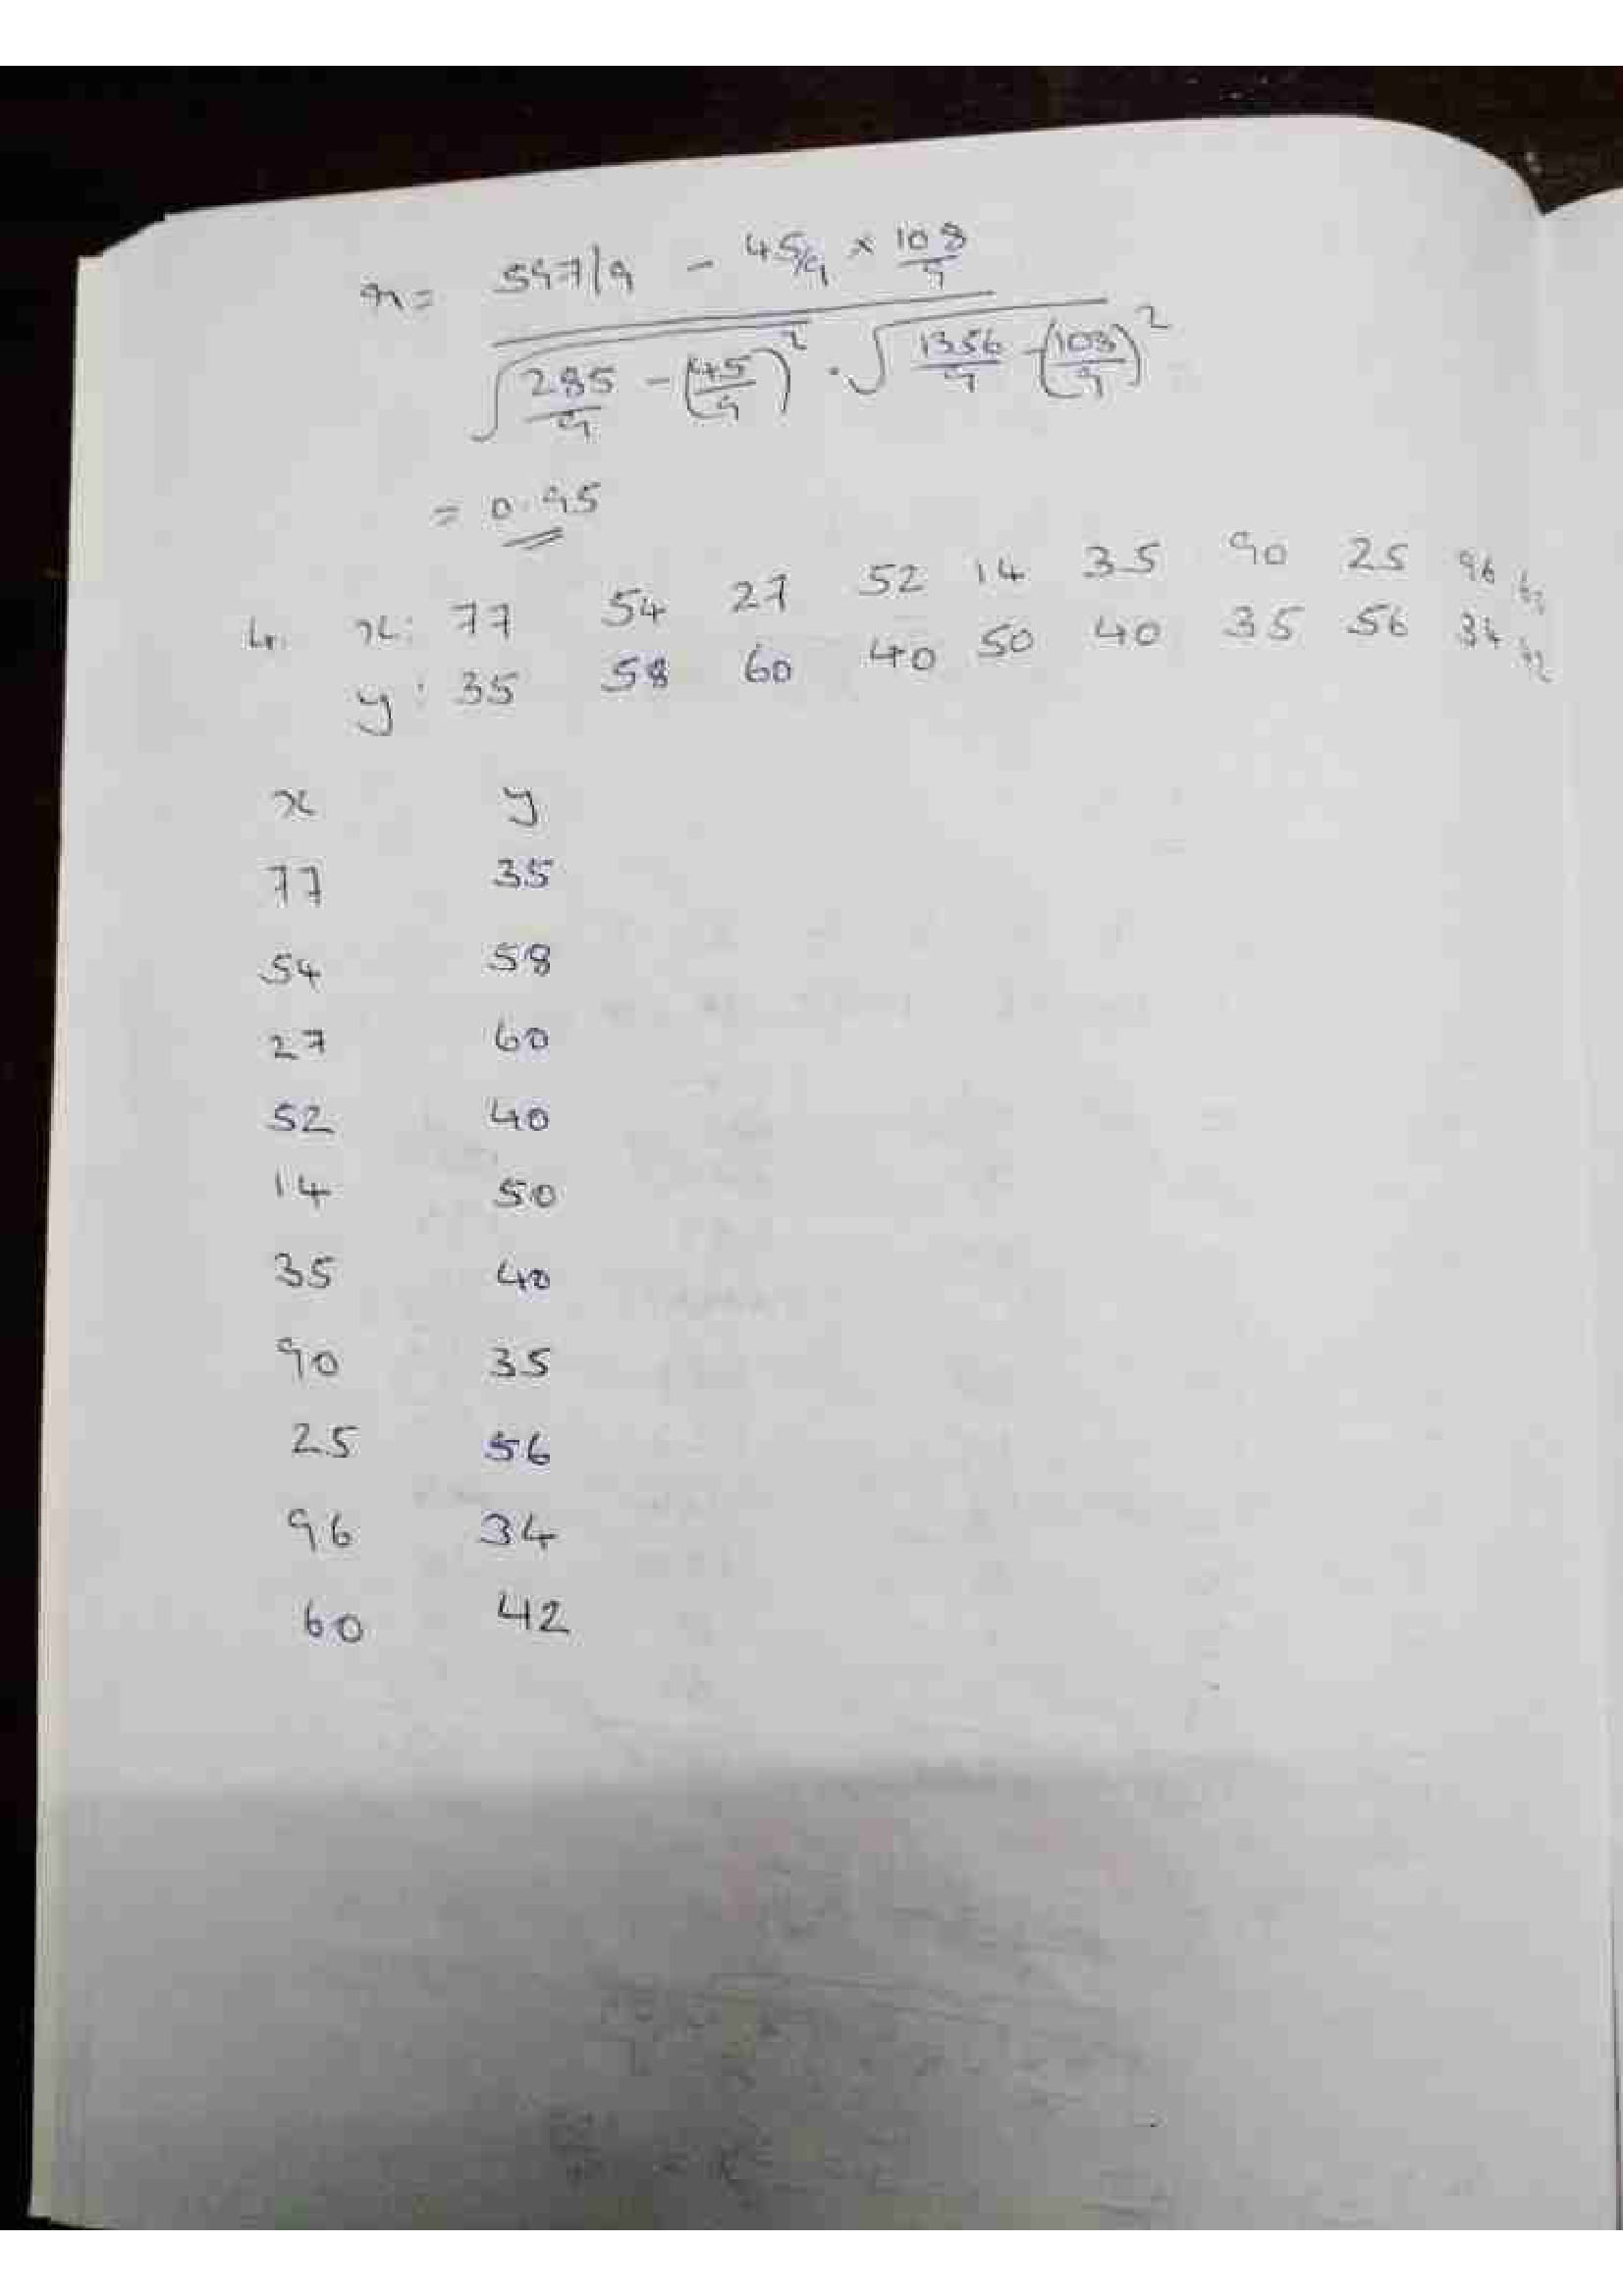 r = 597/9 - 45/9 × 108/9
√285/9 - (45/9)² · √1356/9 - (108/9)²
= 0.95
4. x: 77 54 27 52 14 35 90 25 96 60
y: 35 58 60 40 50 40 35 56 34 42
x y
77 35
54 58
27 60
52 40
14 50
35 40
90 35
25 56
96 34
60 42